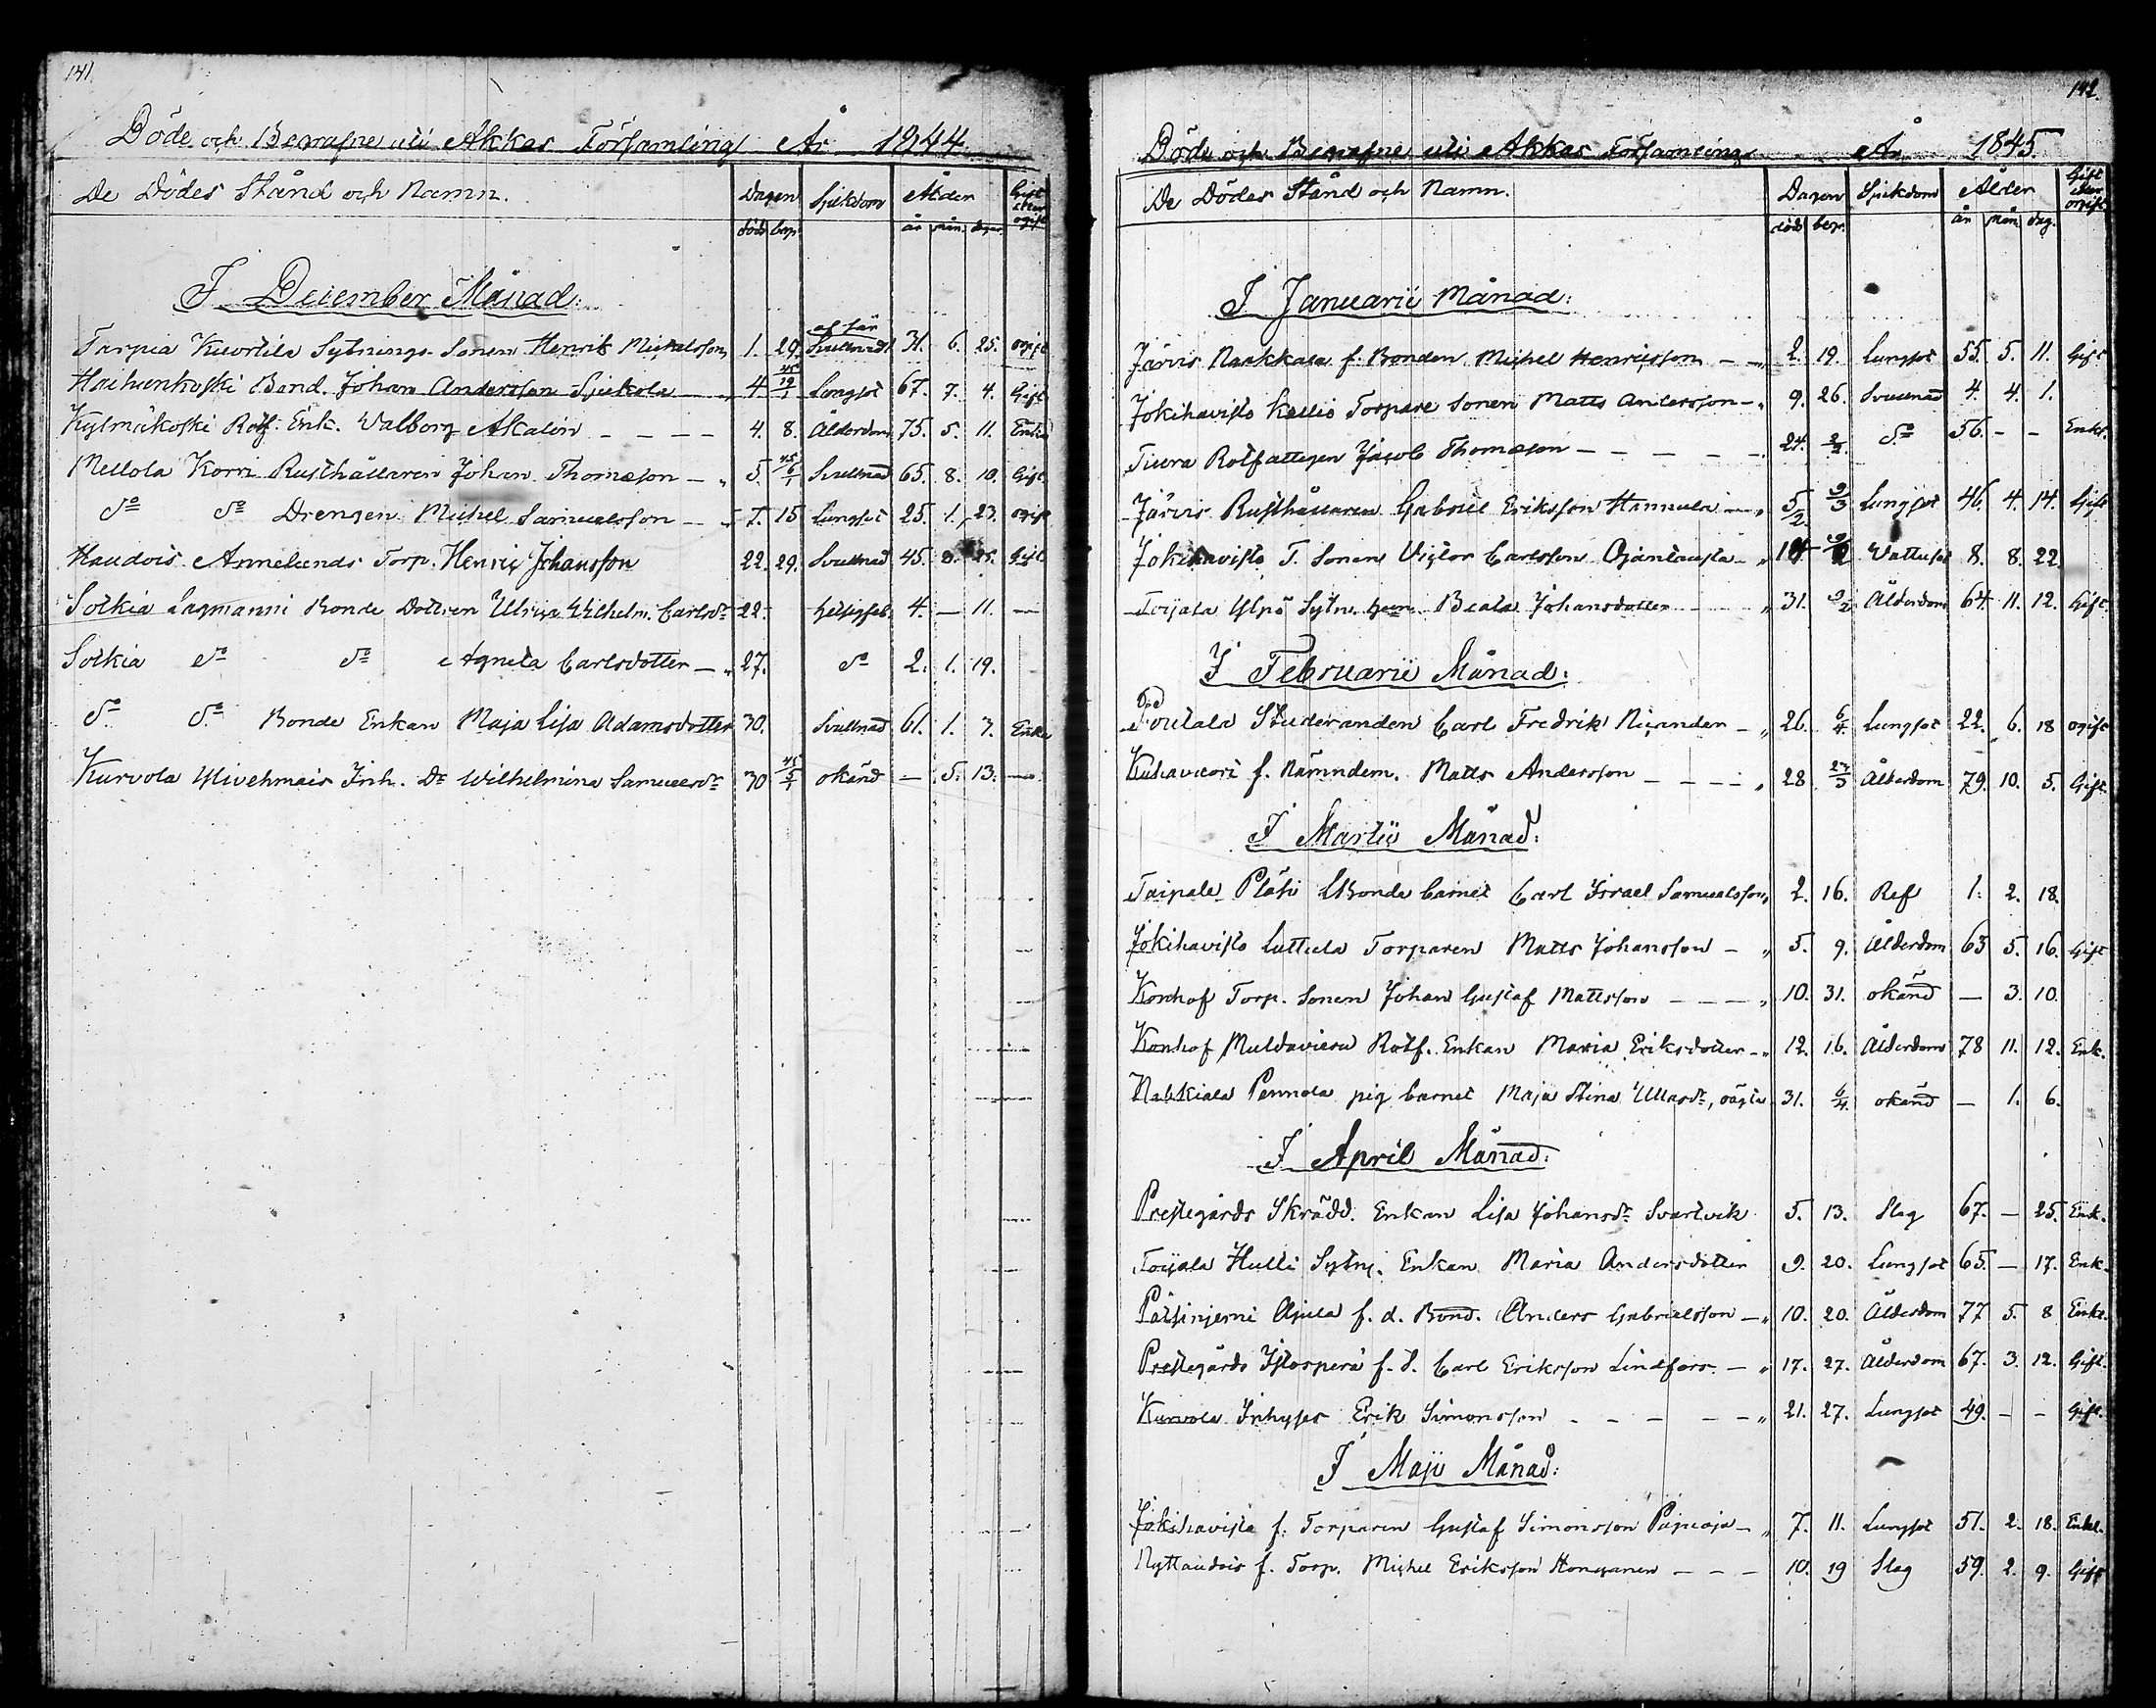 141.
Döde och Begrafne uti Akkas Församling År 1844.
De Dödes Stånd och Namn. Dagen Sjukdom Ålder Gift eller ogift
död begr. år mån. dagar
I December Månad:
Tarpia Kuortila Sytnings Sonen Henrik Michelsson 1. 29. Svullnad 31. 6. 25. ogift
Bond. Johan Andersson Sjukola 4. 45 19/1 Lungsot 67. 7. 4. Gift
Kylmäkoski Rotf. Enk. Walborg Akalon 4. 8. Ålderdom 75. 5. 11. Enka
Mellola Korri Rusthållaren Johan Thomsson 5. 45 6/1 Svullnad 65. 8. 10. Gift
do do Drengen Michel Samuelsson 7. 15 Lungsot 25. 1. 23. ogift
Haudois Annelunds Torp. Henric Johansson 22. 29. Svullnad 45. 25. Gift
Sotkia Lagmanni Bonde Dottren Ulrica Wilhelm. Carlsdr 22. 4. — 11. —
Sotkia do do Agneta Carlsdotter 27. do 2. 1. 19.
do do Bonde Enkan Maja Lisa Adamsdotter 30. Svullnad 61. 1. 3. Enka
Kurvola Ylivehmais Inh. Dr Wilhelmina Samuelsdr 30 45 5/1 okänd — 5. 13. —
142.
Döde och Begrafne uti Akkas Församling År 1845.
De Dödes Stånd och Namn. Dagen Sjukdom Ålder Gift eller ogift
död begr. år mån. dag.
I Januarii Månad:
Järvis Naakkala f. Bonden Michel Henricsson 2. 19. Lungsot 55. 5. 11. Gift
Jokihavisto Kallio Torpare Sonen Matts Andersson 9. 26. Svullnad 4. 4. 1.
Tiura Rotfattigen Jacob Thomsson 24. 2/2 do 56. - - Enkl.
Järvis Rusthållaren Gabriel Eriksson Hannula 5/2 9/3 Lungsot 46. 4. 14. Gift
Jokihavisto T. Sonen Victor Carlsson Ojantausta Wattusot 8. 8. 22.
Toijala Ylpö Sytn. Beata Johansdotter 31. 9/2 Ålderdom 64. 11. 12. Gift
I Februarii Månad:
Studeranden Carl Fredrik Nicander 26. 6/4. Lungsot 22. 6. 18 ogift
Kuhavuori f. Nämndem. Matts Andersson 28 24/3 Ålderdom 79. 10. 5. Gift
I Martii Månad:
Taipale Pläsi Bonde barnet Carl Israel Samuelsson 2. 16. Ref 1. 2. 18.
Jokihavisto Luttula Torparen Matts Johansson 5. 9. Ålderdom 63 5. 16. Gift
Konhof Torp. Sonen Johan Gustaf Mattsson 10. 31. okänd — 3. 10.
Konhof Muldavieru Rotf. Enkan Maria Eriksdotter 12. 16. Ålderdom 78 11. 12. Enk.
Nahkiala Pennola pig barnet Maja Stina Ullasdr, oägta 31. 6/4 okänd — 1. 6.
I April Månad:
Prestegårds Skrädd. Enkan Lisa Johansdr Svartvik 5. 13. Slag 67. — 25. Enk.
Toijala Hulli Sytng. Enkan Maria Andersdotter 9. 20. Lungsot 65. — 17. Enk.
Pätsinjemi Ojula f. d. Bond. Anders Gabrielsson 10. 20. Ålderdom 77 5. 8 Enkl.
Prestegårds f. d. Carl Eriksson Lindfors 17. 27. Ålderdom 67. 3. 12. Gift.
Kurvola Inhyses Erik Simonsson 21. 27. Lungsot 49. - - Gift.
I Maji Månad:
Jokihavisto f. Torparen Gustaf Simonsson 7. 11. Lungsot 51. 2. 18. Enkl.
Nyttaudois f. Torp. Michel Eriksson Honganen 10. 19 Slag 59. 2. 9. Gift